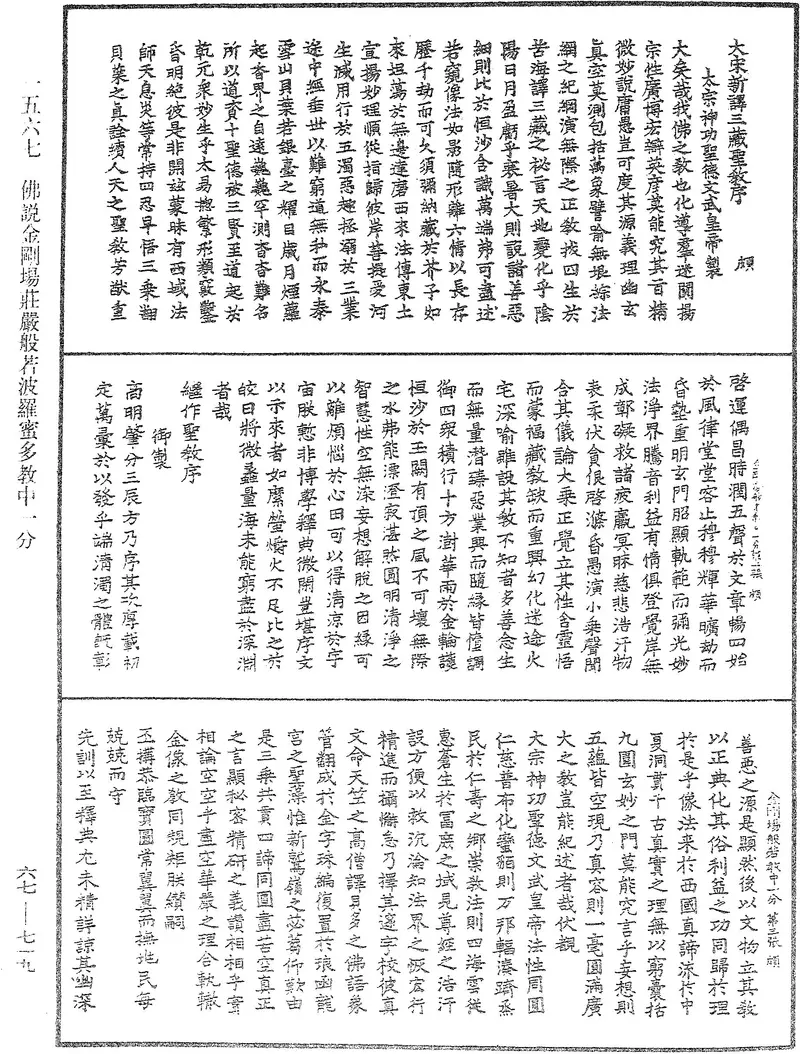 大宋新譯三藏聖教序 顛
太宗神功聖德文武皇帝製
大矣哉我佛之教也化導羣迷闡揚
宗性廣博宏辯英彥莫能究其旨精
微妙說庸愚豈可度其源義理幽玄
真空莫測包括萬象譬喻無垠綜法
網之紀綱演無際之正教拔四生於
苦海譯三藏之祕言天地變化乎陰
陽日月盈虧乎寒暑大則說諸善惡
細則比於恒沙含識萬端弗可盡述
若窺像法如影隨形離六情以長存
歷千劫而可久須彌納藏於芥子如
來坦蕩於無邊達磨西來法傳東土
宣揚妙理順從指歸彼岸菩提愛河
生滅用行於五濁惡趣拯溺於三業
途中經垂世以難窮道無私而永泰
雪山貝葉若銀臺之耀目歲月煙蘿
起香界之自遠巍巍罕測杳杳難名
所以道資十聖德被三賢至道起於
乾元衆妙生乎太易摠繁形類竅鑿
昏明絕彼是非開茲蒙昧有西域法
師天息災等常持四忍早悟三乘飜
貝葉之真詮續人天之聖教芳猷重
啓運偶昌時潤五聲於文章暢四始
於風律堂堂容止穆穆輝華曠劫而
昏墊重明玄門昭顯軌範而彌光妙
法淨界騰音利益有情俱登覺岸無
成鄣礙救諸疲羸冥昧慈悲浩汗物
表柔伏貪佷啓滌昏愚演小乘聲聞
含其儀論大乘正覺立其性含靈悟
而蒙福藏教缺而重興幻化迷途火
宅深喻雖設其教不知者多善念生
而無量潛臻惡業興而隨緣皆憧調
御四衆積行十方澍華雨於金輪護
恒沙於玉闕有頂之風不可壞無際
之水弗能漂澄寂湛然圓明清淨之
智慧性空無染妄想解脫之因緣可
以離煩惱於心田可以得清涼於宇
宙朕慙非博學釋典微閑豈堪序文
以示來者如縻螢爝火不足比之於
皎日將微蠡量海未能窮盡於深淵
者哉
繼作聖教序
御製
高明肇分三辰方乃序其次厚載初
定萬彙於以發乎端清濁之體既彰
金剛場般若教中一分 第三張 顛
善惡之源是顯然後以文物立其教
以正典化其俗利益之功同歸於理
於是乎像法來於西國真諦流於中
夏洞貫千古真實之理無以窮囊括
九圍玄妙之門莫能究言乎妄想則
五蘊皆空現乃真容則一毫圓滿廣
大之教豈能紀述者哉伏覩
太宗神功聖德文武皇帝法性周圓
仁慈普布化蠻貊則万邦輻湊躋黍
民於仁壽之鄉崇教法則四海雲從
惠蒼生於富庶之域見尊經之浩汗
設方便以救沉淪知法界之恢宏行
精進而攝懈怠乃擇其邃宇校彼真
文命天竺之高僧譯貝多之佛語象
管翻成於金字珠編復置於琅函龍
宮之聖藻惟新鷲嶺之苾蒭仰歎由
是三乘共貫四諦同圓盡苦空真正
之言顯秘密精研之義讚相相乎實
相論空空乎盡空華嚴之理合軌轍
金像之教同規矩朕纘嗣
丕搆恭臨寶圖常翼翼而撫兆民每
兢兢而守
先訓以至釋典尤未精詳諒其幽深
一五六七 佛説金剛場莊嚴般若波羅蜜多教中一分
六七—七一九